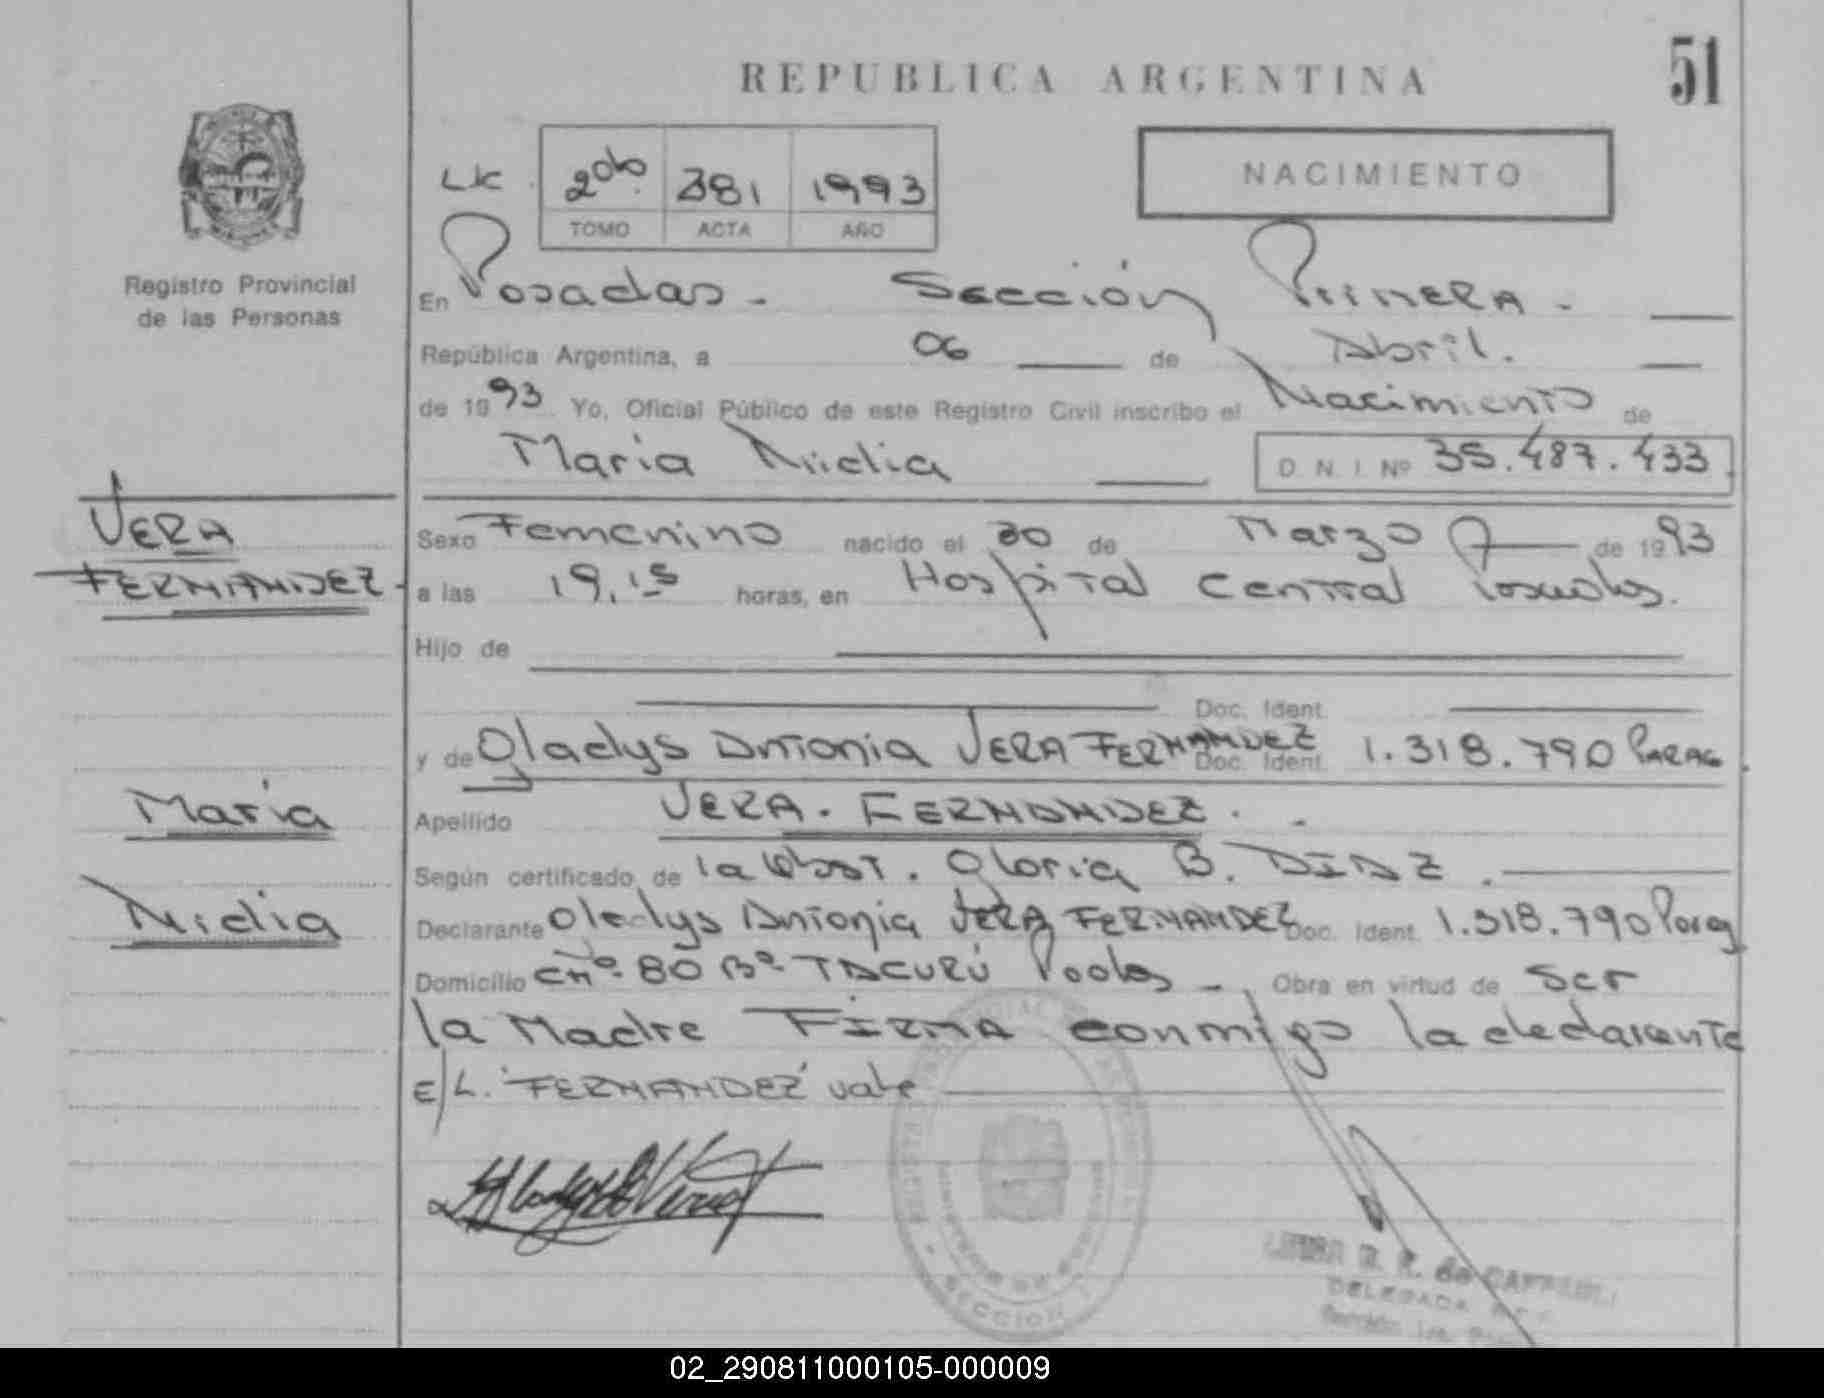 REPUBLICA ARGENTINA
51
NACIMIENTO
206 381 1993
TOMO ACTA AÑO
Registro Provincial
de las Personas
En Posadas - Sección Primera -
República Argentina, a 06 de Abril.
de 1993 Yo, Oficial Público de este Registro Civil inscribo el Nacimiento de
Maria Nidia D. N. I. Nº 35.487.433
VERA
FERNANDEZ
Sexo Femenino nacido el 30 de Marzo de 1993
a las 19,15 horas, en Hospital Central Posadas.
Hijo de
Doc. Ident.
y de Gladys Antonia VERA FERNANDEZ Doc. Ident. 1.318.790 PARAG
Maria
Nidia
Apellido VERA - FERNANDEZ.
Según certificado de la Obst. Gloria B. DIAZ.
Declarante Gladys Antonia VERA FERNANDEZ Doc. Ident. 1.318.790 Parag
Domicilio Chº 80 Bº TACURÚ Pdas - Obra en virtud de ser
la Madre FIRMA conmigo la declarante
E/L. "FERNANDEZ" vale
SECCION
DELEGADA
02_290811000105-000009